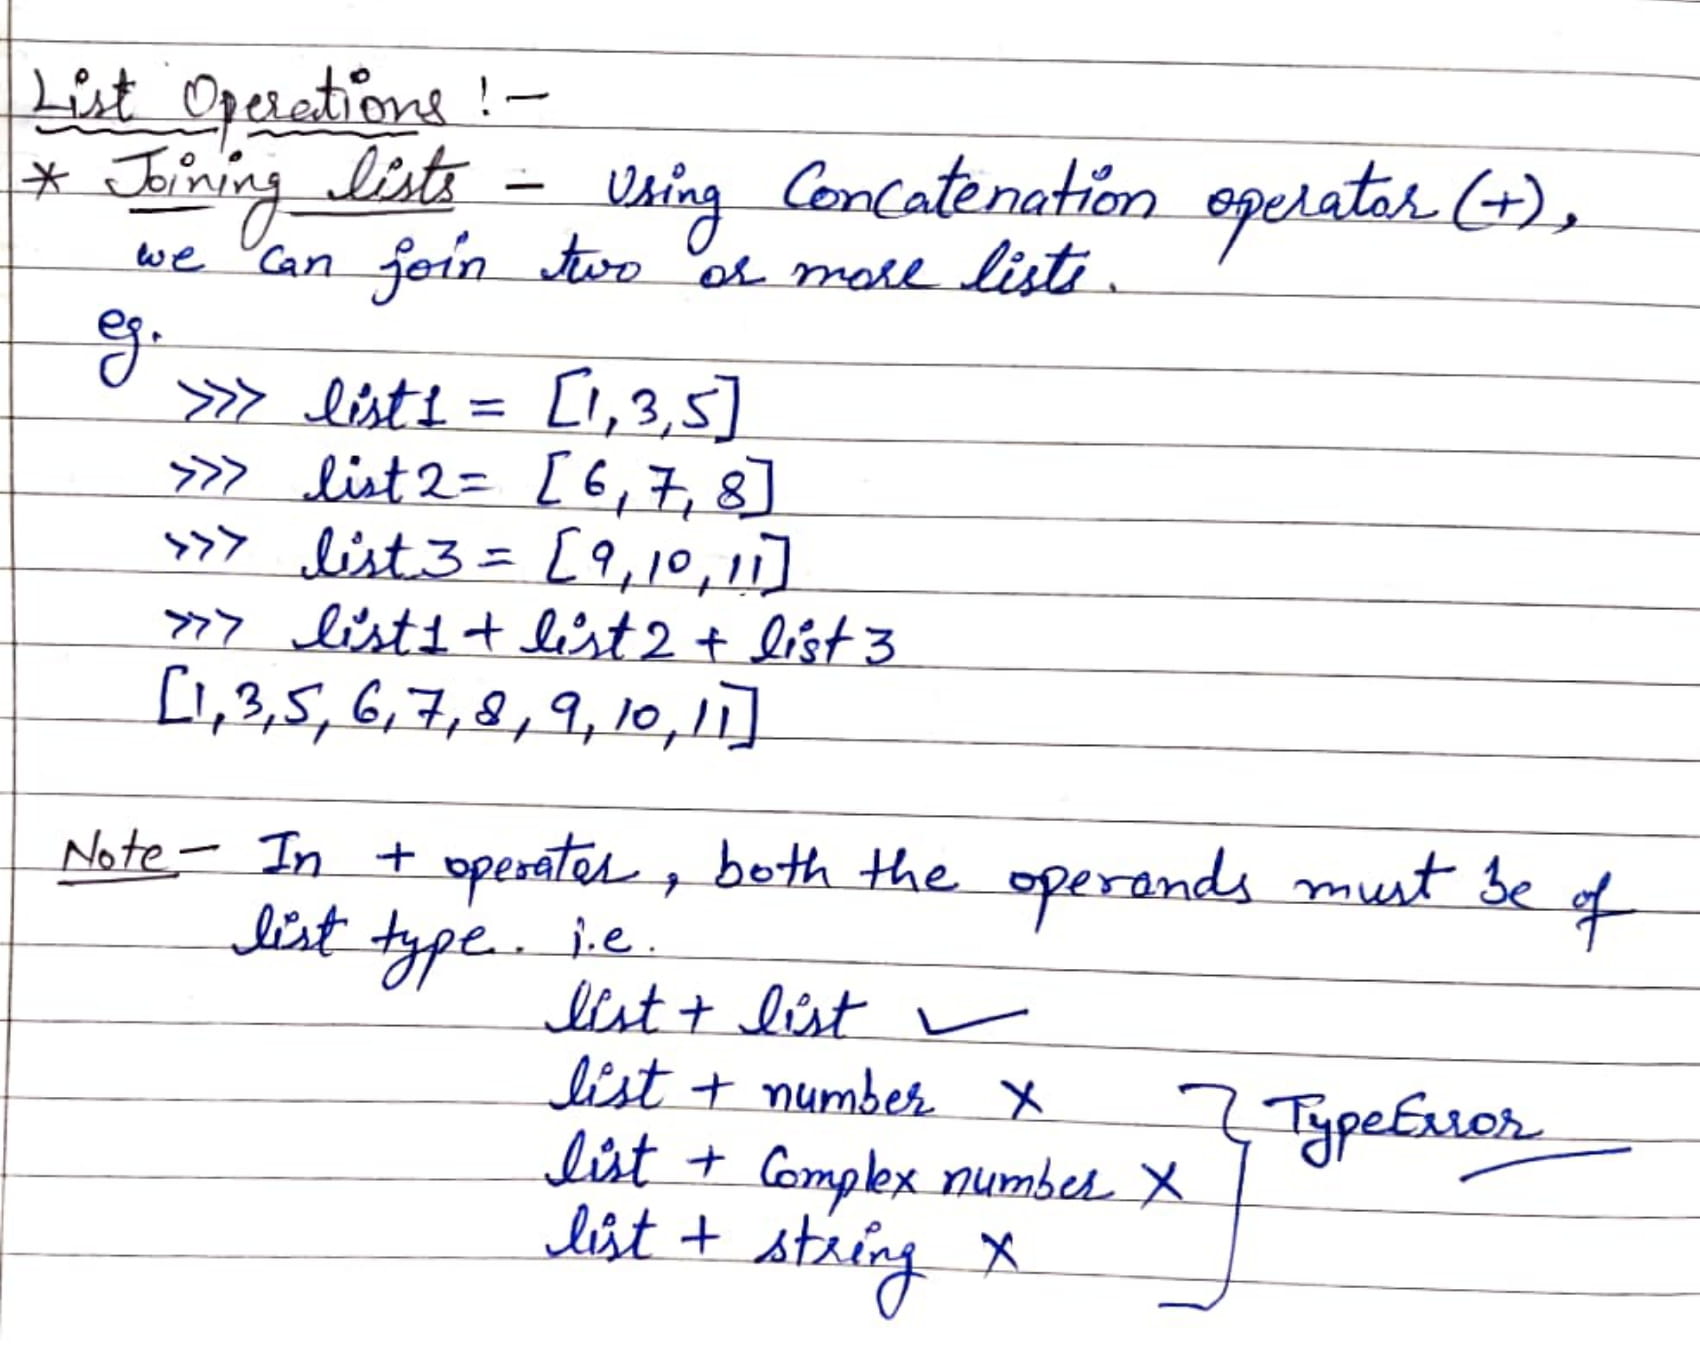 List Operations :-
* Joining lists - Using Concatenation operator (+),
we can join two or more lists.
eg.
>>> list1 = [1,3,5]
>>> list2 = [6,7,8]
>>> list3 = [9,10,11]
>>> list1 + list2 + list3
[1,3,5,6,7,8,9,10,11]
Note - In + operator, both the operands must be of
list type. i.e.
list + list ✓
list + number ×
list + Complex number × } TypeError
list + string ×